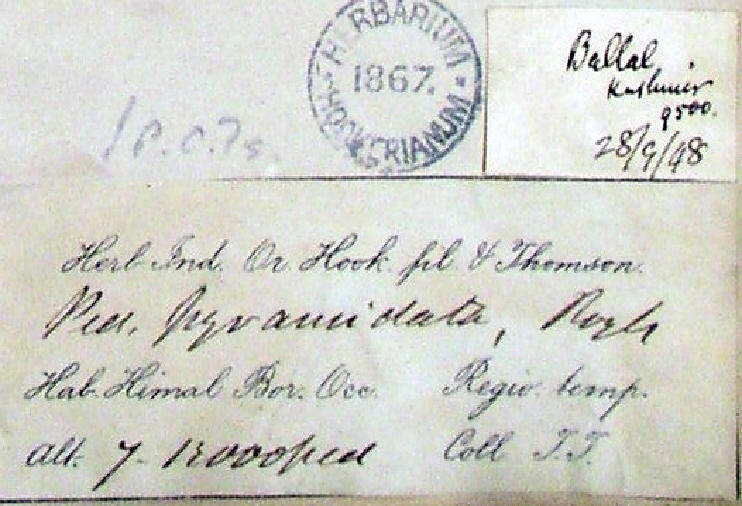 HERBARIUM
1867.
HOOKERIANUM
Ballal
Kashmir
9500.
28/9/48
Herb. Ind. Or. Hook. fil. & Thomson.
Ped. pyramidata, Royle
Hab. Himal. Bor. Occ. Regio. temp.
alt. 7- 12000 ped Coll. T.T.